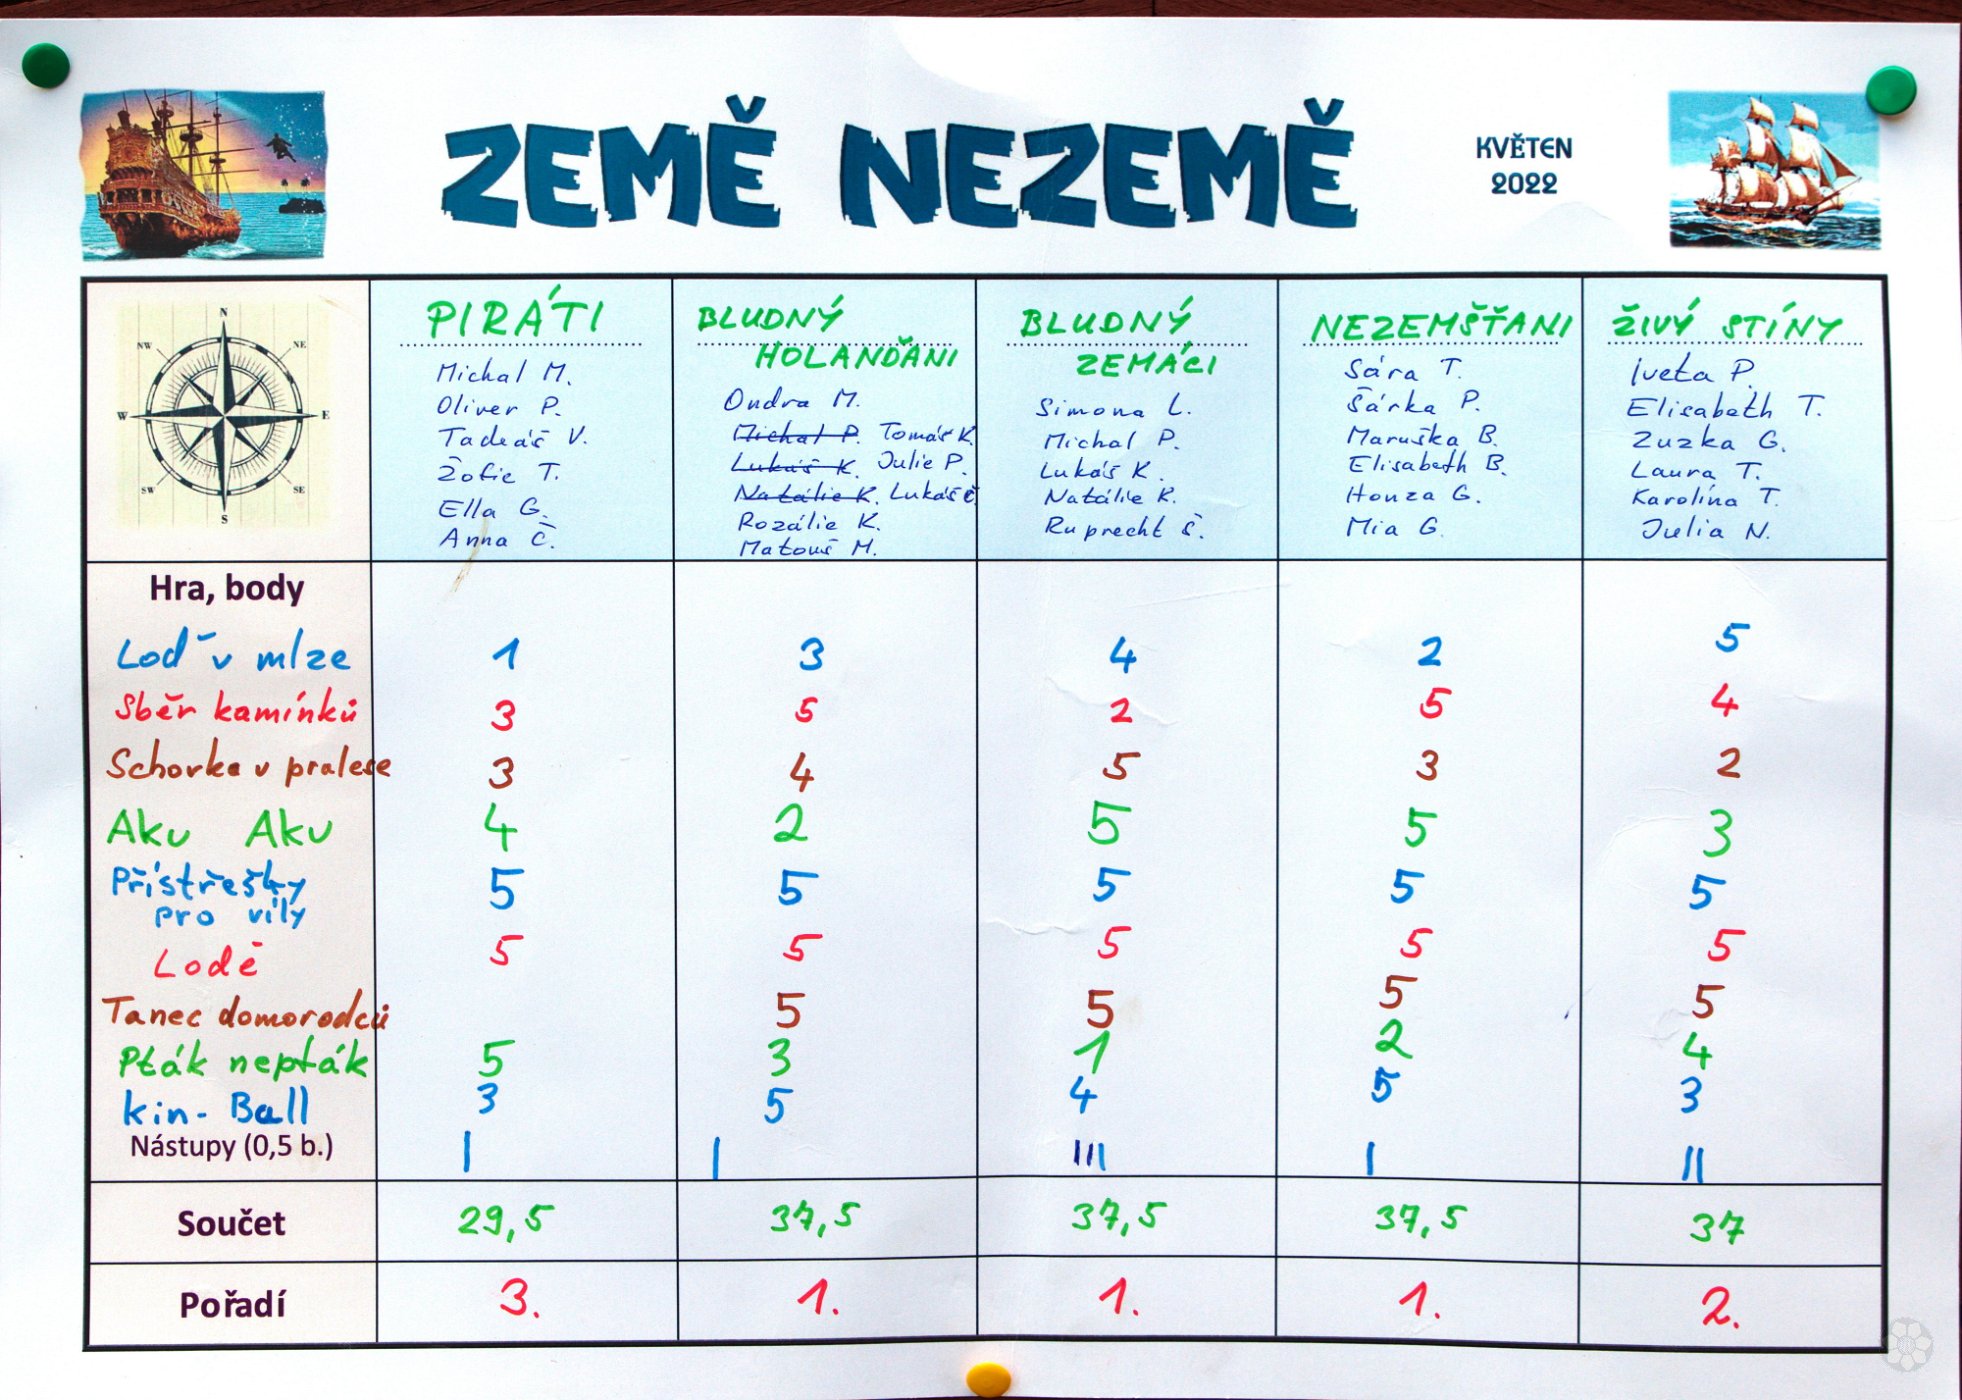 ZEMĚ NEZEMĚ
KVĚTEN
2022
N
NW
NE
W
E
SW
SE
S
PIRÁTI
Michal M.
Oliver P.
Tadeáš V.
Žofie T.
Ella G.
Anna Č.
BLUDNÝ
HOLANĎANI
Ondra M.
Michal P. Tomáš K.
Lukáš K. Julie P.
Natálie K. Lukáš Č
Rozálie K.
Matouš M.
BLUDNÝ
ZEMÁCI
Simona L.
Michal P.
Lukáš K.
Natálie K.
Ruprecht Š.
NEZEMŠŤANI
Sára T.
Šárka P.
Maruška B.
Elisabeth B.
Honza G.
Mia G.
ŽIVÝ STÍNY
Iveta P.
Elisabeth T.
Zuzka G.
Laura T.
Karolína T.
Julia N.
Hra, body
Loď v mlze 1 3 4 2 5
Sběr kamínků 3 5 2 5 4
Schovka v pralese 3 4 5 3 2
Aku Aku 4 2 5 5 3
Přístřešky
pro víly 5 5 5 5 5
Lodě 5 5 5 5 5
Tanec domorodců 5 5 5 5
Pták nepták 5 3 1 2 4
Kin-Ball 3 5 4 5 3
Nástupy (0,5 b.) I I III I II
Součet 29,5 37,5 37,5 37,5 37
Pořadí 3. 1. 1. 1. 2.